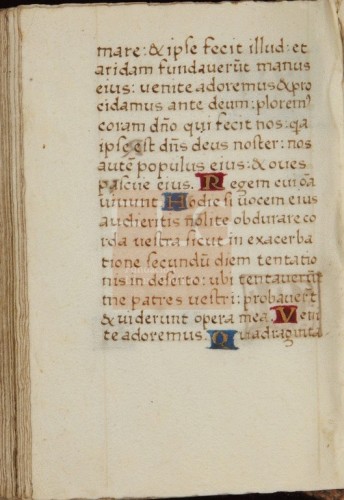 mare: & ipse fecit illud: et
aridam fundaverūt manus
eius: venite adoremus & pro
cidamus ante deum: ploremꝰ
coram dño qui fecit nos: qa
ipse est dñs deus noster: nos
autē populus eius: & oves
pascue eius. Regem cui oĩa
vivunt Hodie si vocem eius
audieritis nolite obdurare co
rda vestra sicut in exacerba
tione secundū diem tentatio
nis in deserto: ubi tentaverūt
me patres vestri: probaverūt
& viderunt opera mea. Veni
te adoremus. Quadraginta